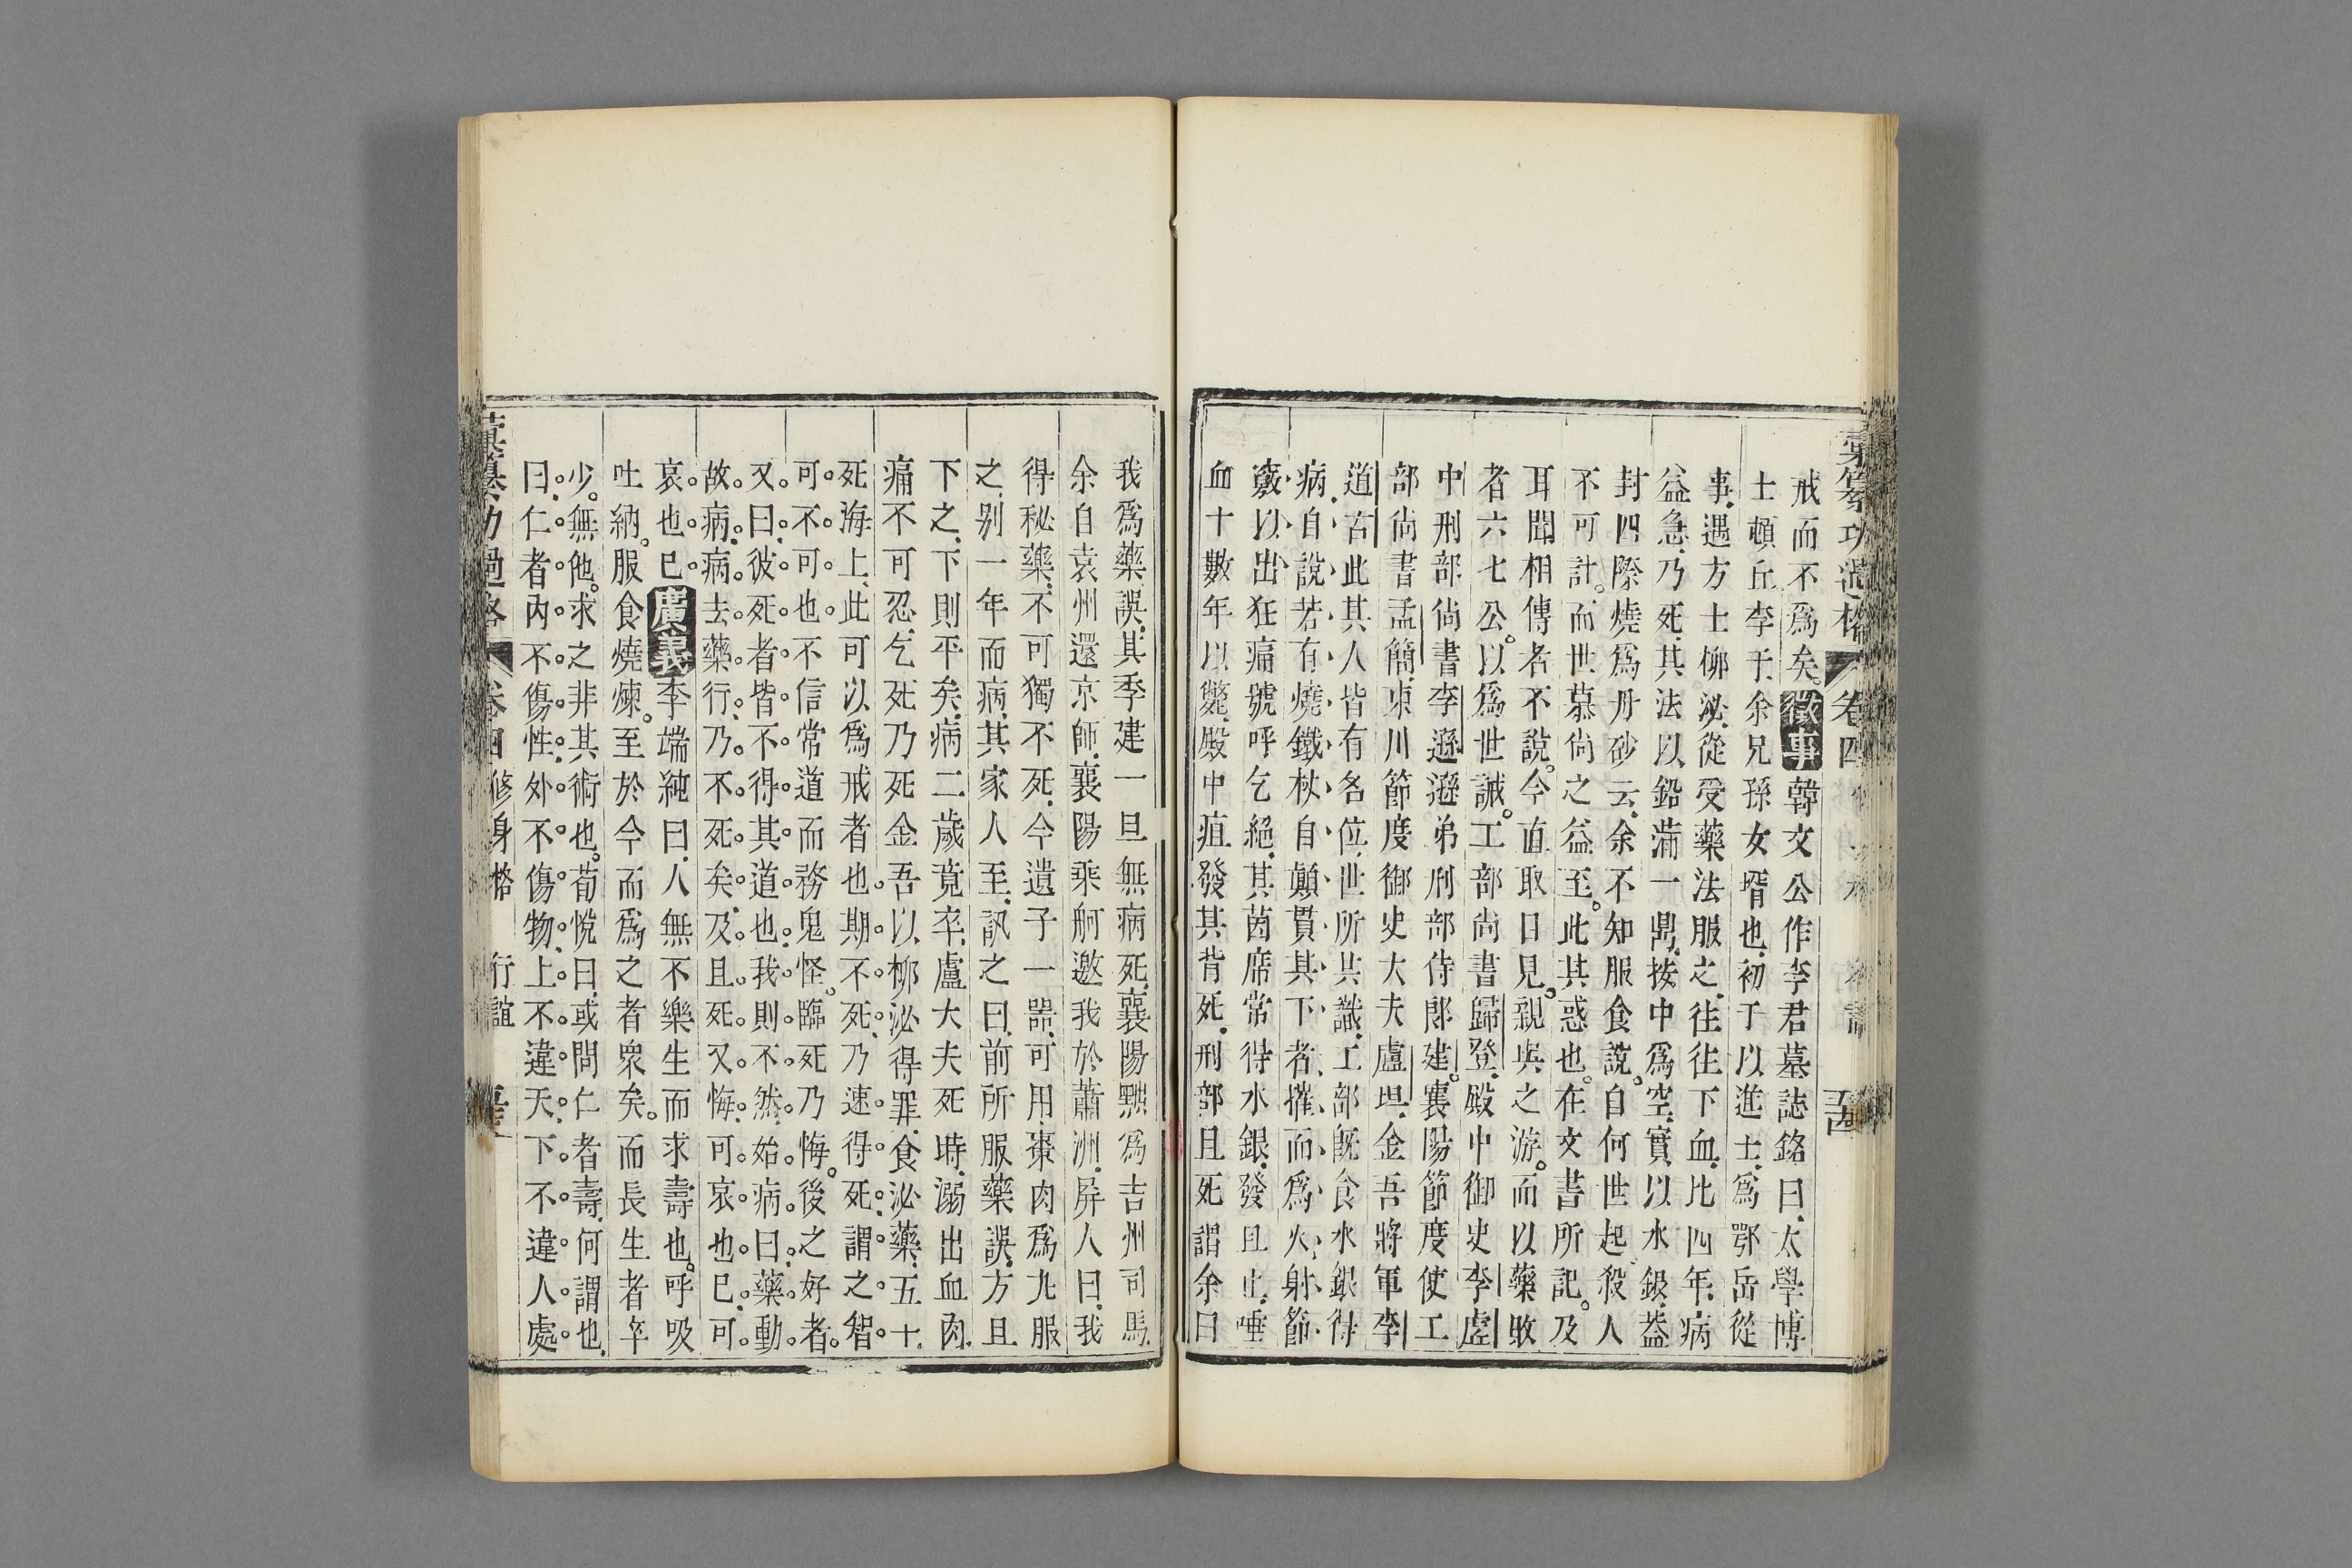 彙纂功過格 卷四
戒而不爲矣。徵事韓文公作李君墓誌銘曰太學博
士頓丘李于余兄孫女壻也初于以進士爲鄂岳從
事遇方士柳泌從受藥法服之往往下血比四年病
益急乃死其法以鉛滿一鼎按中爲空實以水銀葢
封四際燒爲丹砂云余不知服食說自何世起殺人
不可計。而世慕尙之益至。此其惑也。在文書所記。及
耳聞相傳者不說。今直取目見。親與之游。而以藥敗
者六七公。以爲世誡。工部尙書歸登殿中御史李虛
中刑部尙書李遜遜弟刑部侍郎建。襄陽節度使工
部尙書孟簡東川節度御史大夫盧坦金吾將軍李
道古此其人皆有名位世所共識工部旣食水銀得
病自說若有燒鐵杖自顚貫其下者摧而爲火射節
竅以出狂痛號呼乞絕其茵席常得水銀發且止唾
血十數年以斃殿中疽發其背死刑部且死謂余曰
五十四
我爲藥誤其季建一旦無病死襄陽黜爲吉州司馬
余自袁州還京師襄陽乘舸邀我於蕭洲屏人曰我
得秘藥不可獨不死今遺子一器可用棗肉爲丸服
之別一年而病其家人至訊之曰前所服藥誤方且
下之下則平矣病二歲竟卒盧大夫死時溺出血肉
痛不可忍乞死乃死金吾以柳泌得罪食泌藥五十
死海上此可以爲戒者也。期不死乃速得死謂之智
可不可也不信常道而務鬼怪。臨死乃悔。後之好者。
又曰彼死者皆不得其道也我則不然始病曰藥動
故病病去藥行乃不死矣及且死又悔可哀也已可
哀也已廣義李端純曰人無不樂生而求壽也。呼吸
吐納。服食燒煉。至於今而爲之者衆矣。而長生者卒
少。無他。求之非其術也。荀悅曰或問仁者壽何謂也
曰仁者內不傷性外不傷物上不違天下不違人處
彙纂功過格 卷四 修身格 行誼